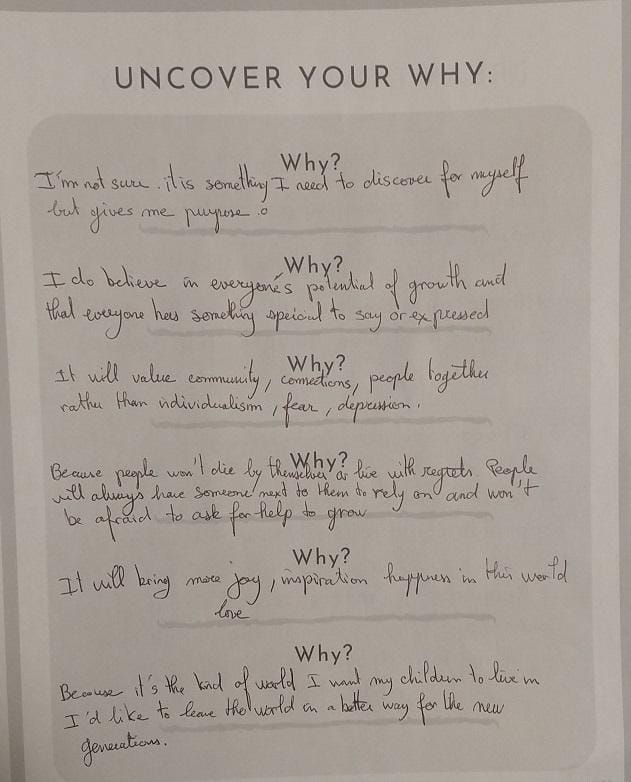 UNCOVER YOUR WHY:
Why?
I'm not sure. it is something I need to discover for myself
but gives me purpose.
Why?
I do believe in everyone's potential of growth and
that everyone has something special to say or expressed
Why?
It will value community, connections, people together
rather than individualism, fear, depression.
Why?
Because people won't die by themselves or live with regrets. People
will always have someone next to them to rely on and won't
be afraid to ask for help to grow
Why?
It will bring more joy, inspiration happyness in this world
love
Why?
Because it's the kind of world I want my children to live in
I'd like to leave the world in a better way for the new
generations.